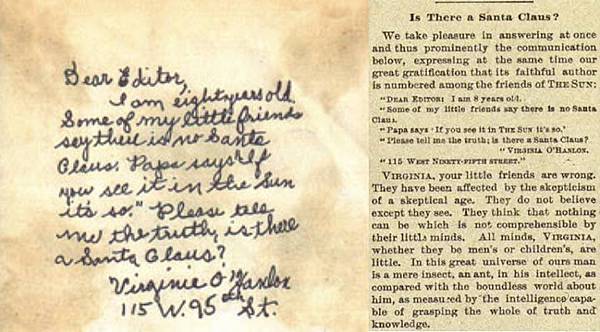 Dear Editor,
I am eight years old.
Some of my little friends
say their is no Santa
Claus. Papa says "If
you see it in the Sun
it's so." Please tell
me the truth, is there
a Santa Claus?
Virginia O'Hanlon
115 W. 95th St.
Is There a Santa Claus?
We take pleasure in answering at once
and thus prominently the communication
below, expressing at the same time our
great gratification that its faithful author
is numbered among the friends of THE SUN:
"DEAR EDITOR: I am 8 years old.
"Some of my little friends say there is no Santa
Claus.
"Papa says 'If you see it in THE SUN it's so.'
"Please tell me the truth; is there a Santa Claus?
"VIRGINIA O'HANLON.
"115 WEST NINETY-FIFTH STREET."
VIRGINIA, your little friends are wrong.
They have been affected by the skepticism
of a skeptical age. They do not believe
except they see. They think that nothing
can be which is not comprehensible by
their little minds. All minds, VIRGINIA,
whether they be men's or children's, are
little. In this great universe of ours man
is a mere insect, an ant, in his intellect, as
compared with the boundless world about
him, as measured by the intelligence capa-
ble of grasping the whole of truth and
knowledge.